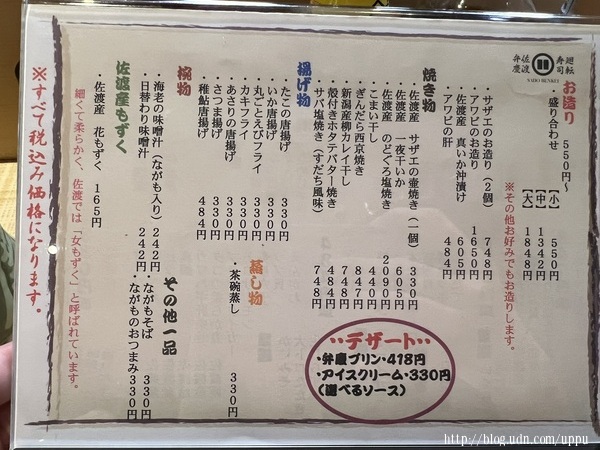 廻転
寿司
佐渡
弁慶
SADO BENKEI
お造り
550円〜
・盛り合わせ
【小】 550円
【中】 1342円
【大】 1848円
・サザエのお造り(2個) 748円
・アワビのお造り 1650円
・佐渡産 真いか沖漬け 605円
・アワビの肝 484円
※その他お好みでもお造りします。
焼き物
・佐渡産 サザエの壷焼き(一個) 330円
・佐渡産 一夜干いか 605円
・佐渡産 のどぐろ塩焼き 2090円
・こまい干し 440円
・ぎんだら西京焼き 847円
・新潟産柳カレイ干し 748円
・殻付きホタテバター焼き 484円
・サバ塩焼き(すだち風味) 748円
揚げ物
・たこの唐揚げ 330円
・いか唐揚げ 330円
・丸ごとえびフライ 330円
・カキフライ 330円
・あさりの唐揚げ 330円
・さつま揚げ 330円
・稚鮎唐揚げ 484円
蒸し物
・茶碗蒸し 330円
椀物
・海老の味噌汁(ながも入り) 242円
・日替わり味噌汁 242円
その他一品
・ながもそば 330円
・ながものおつまみ 330円
佐渡産もずく
・佐渡産 花もずく 165円
細くて柔らかく、佐渡では「女もずく」と呼ばれています。
※すべて税込み価格になります。
‥デザート‥
・弁慶プリン・418円
・アイスクリーム・330円
(選べるソース)
http://blog.udn.com/uppu